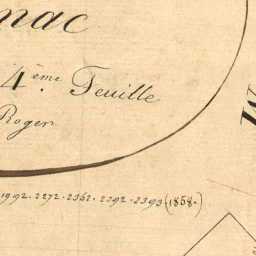 mac
4ème. Feuille
Roger
1992. 2272. 2362. 2392. 2393 (1858.)